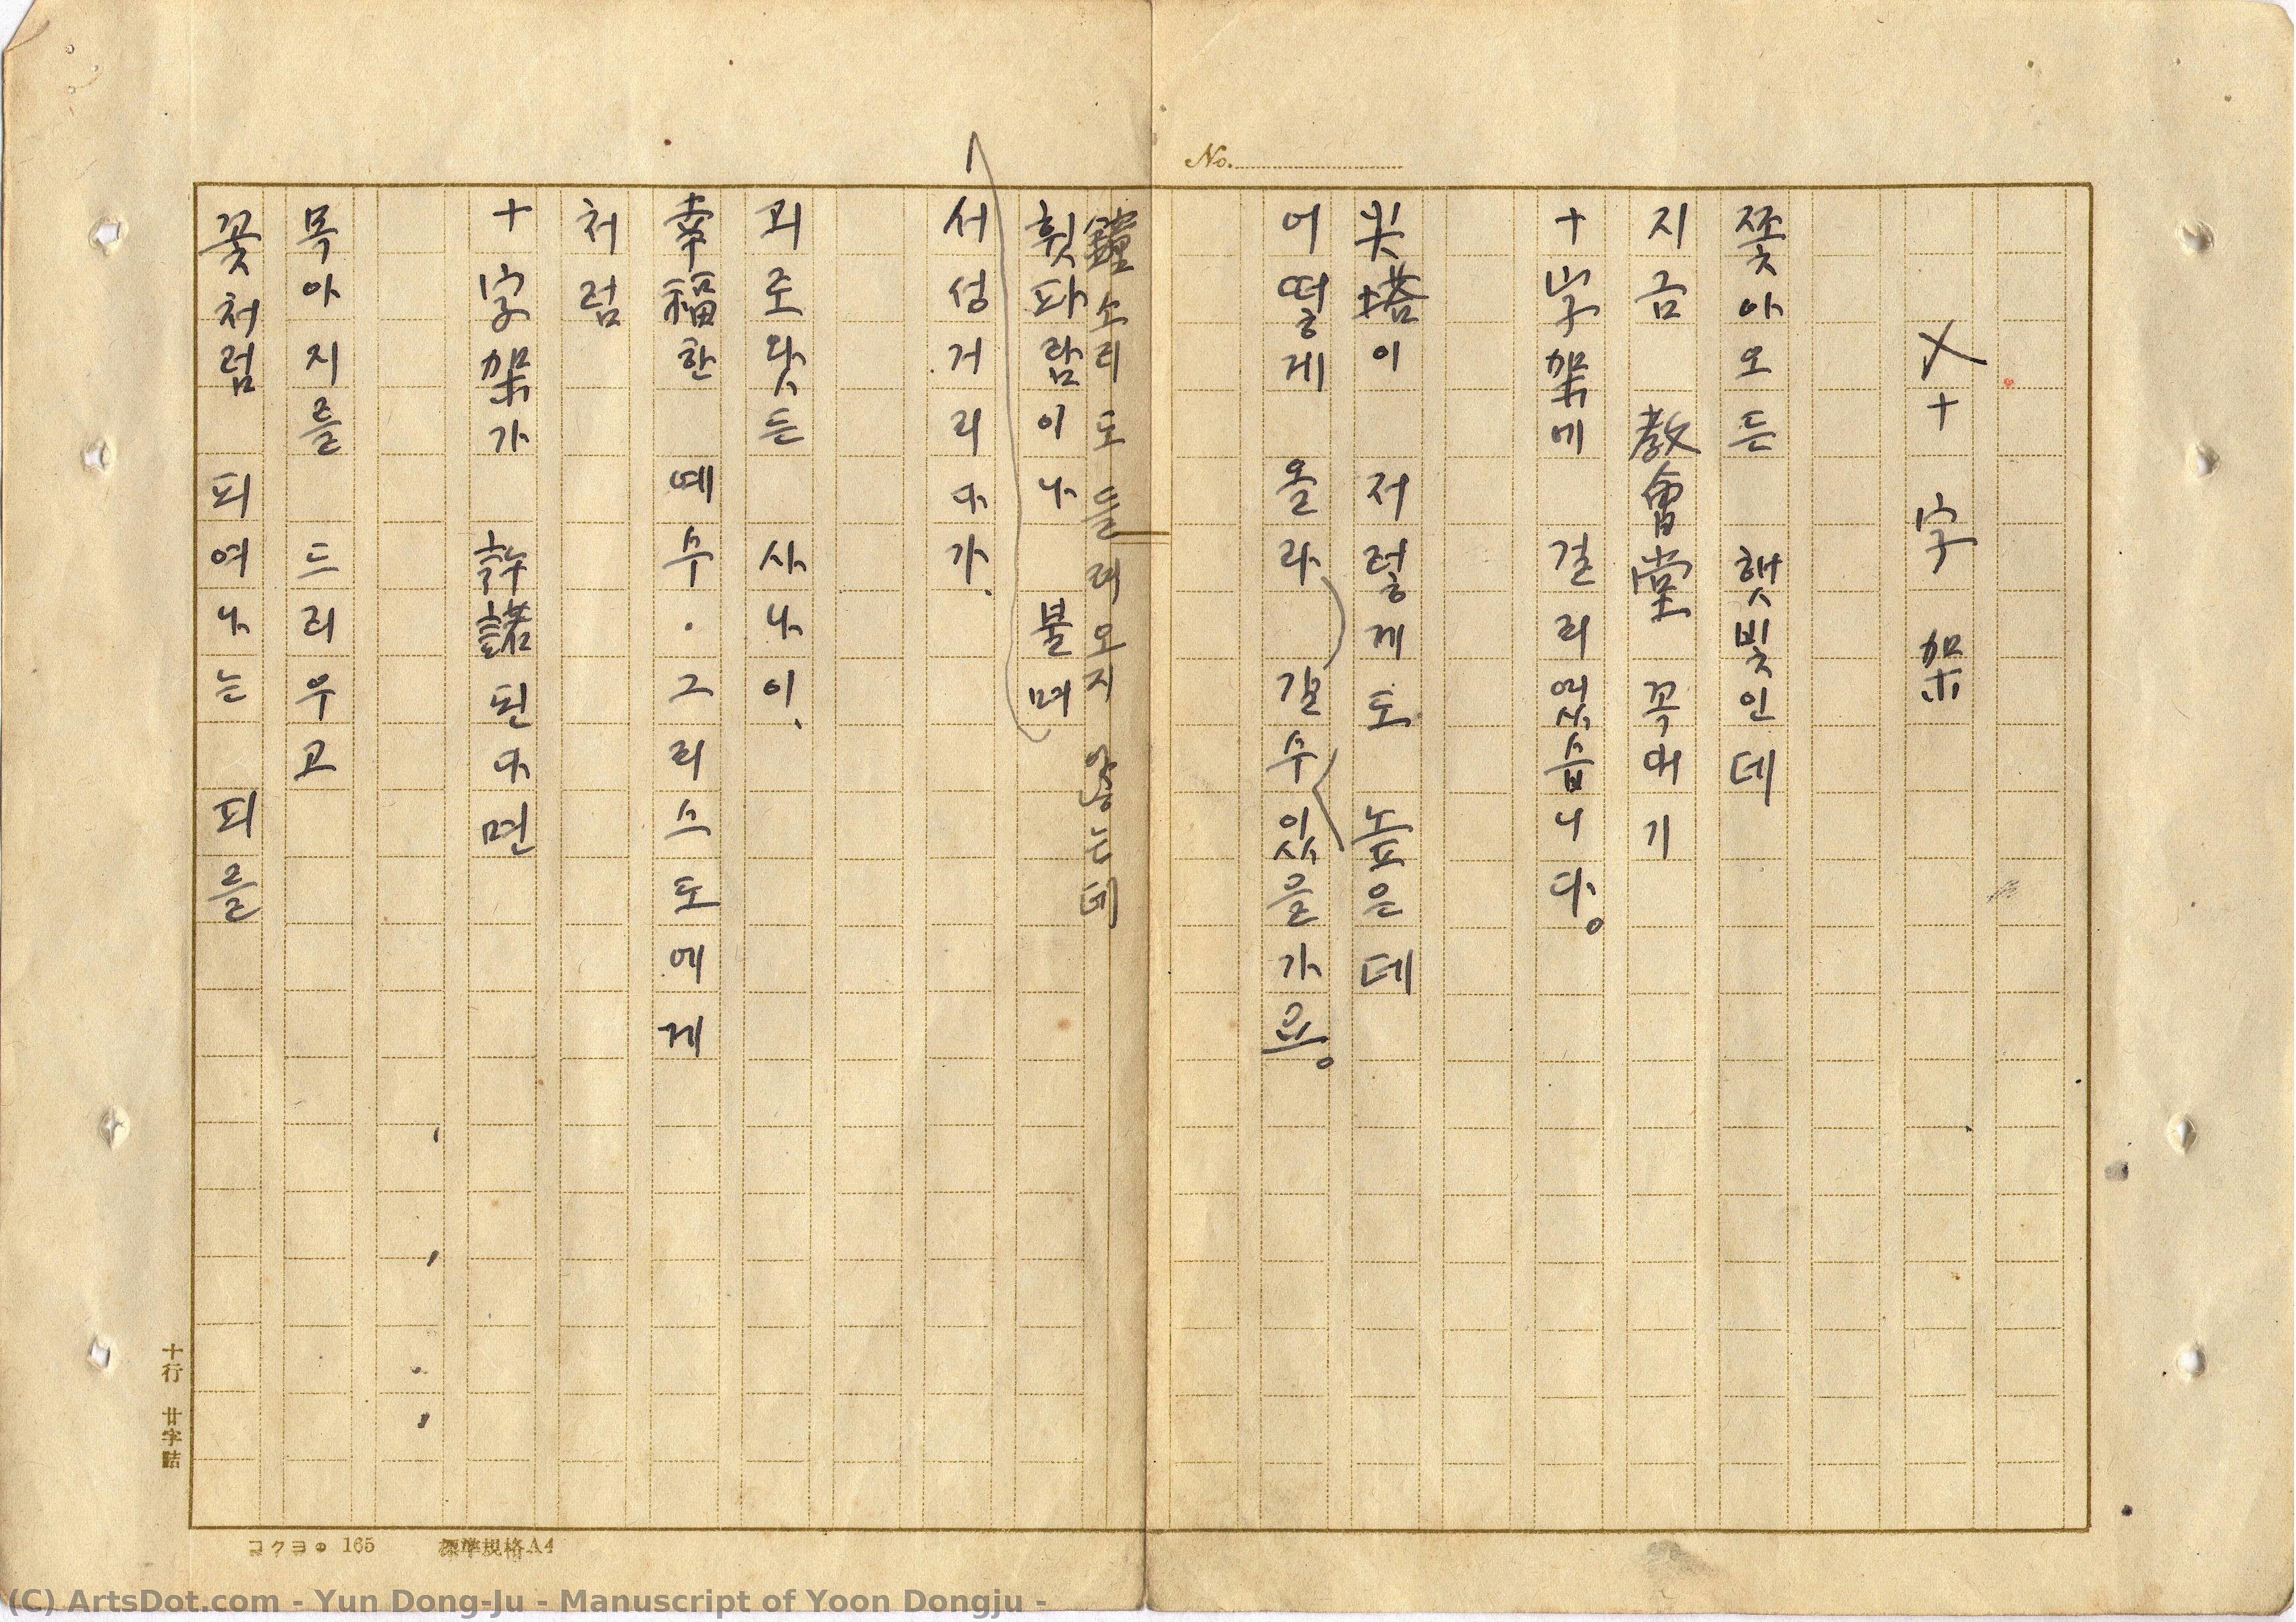 No.
十字架
쫓아오든 햇빛인데
지금 敎會堂 꼭대기
十字架에 걸리였습니다。
尖塔이 저렇게도 높은데
어떻게 올라갈수 있을가요。
鐘소리도 들려오지 않는데
휫파람이나 불며
서성거리다가、
괴로왓든 사나이、
幸福한 예수·그리스도에게
처럼
十字架가 許諾된다면
목아지를 드리우고
꽃처럼 피여나는 피를
十行 廿字詰
コクヨ 165 標準規格A4
(C) ArtsDot.com - Yun Dong-Ju - Manuscript of Yoon Dongju -